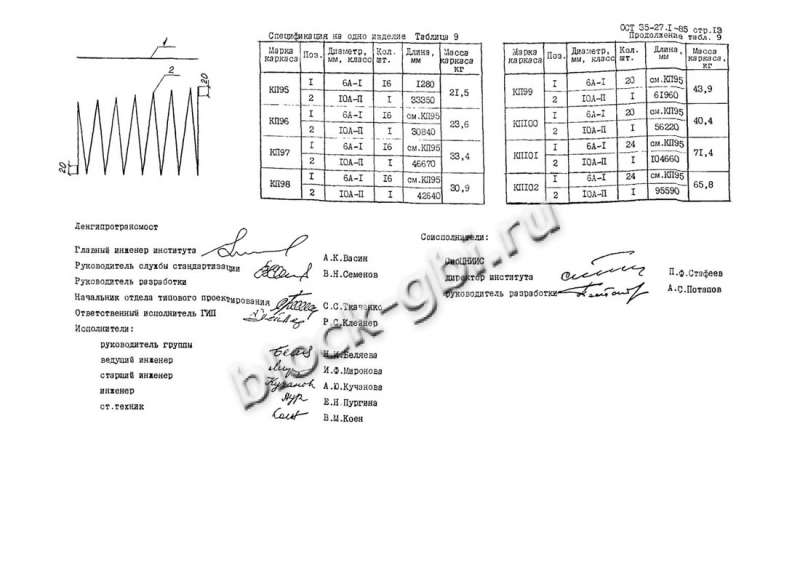 ОСТ 35-27.I-85 стр.13
Спецификация на одно изделие Таблица 9
Продолжение табл. 9
1
2
20
20
Марка каркаса Поз. Диаметр, мм, класс Кол. шт. Длина, мм Масса каркаса кг
КП95 I 6А-I I6 I280 2I,5
2 IOA-П I 33350
КП96 I 6А-I I6 см.КП95 23,6
2 IOA-П I 30840
КП97 I 6А-I I6 см.КП95 33,4
2 IOA-П I 46670
КП98 I 6А-I I6 см.КП95 30,9
2 IOA-П I 42640
Марка каркаса Поз. Диаметр, мм, класс Кол. шт. Длина, мм Масса каркаса, кг
КП99 I 6А-I 20 см.КП95 43,9
2 IOA-П I 6I960
КПI00 I 6А-I 20 см.КП95 40,4
2 IOA-П I 56220
КПI0I I 6А-I 24 см.КП95 7I,4
2 IOA-П I I04660
КПI02 I 6А-I 24 см.КП95 65,8
2 IOA-П I 95590
Ленгипротрансмост
Главный инженер института А.К.Васин
Руководитель службы стандартизации В.Н.Семенов
Руководитель разработки
Начальник отдела типового проектирования С.С.Ткаченко
Ответственный исполнитель ГИП Р.С.Клейнер
Исполнители:
руководитель группы Н.И.Беляева
ведущий инженер И.Ф.Миронова
старший инженер А.Ю.Кучанова
инженер Е.Н.Пургина
ст.техник В.М.Коен
Соисполнители:
СибЦНИИС
директор института П.Ф.Стефеев
руководитель разработки А.С.Потапов
block-gbi.ru